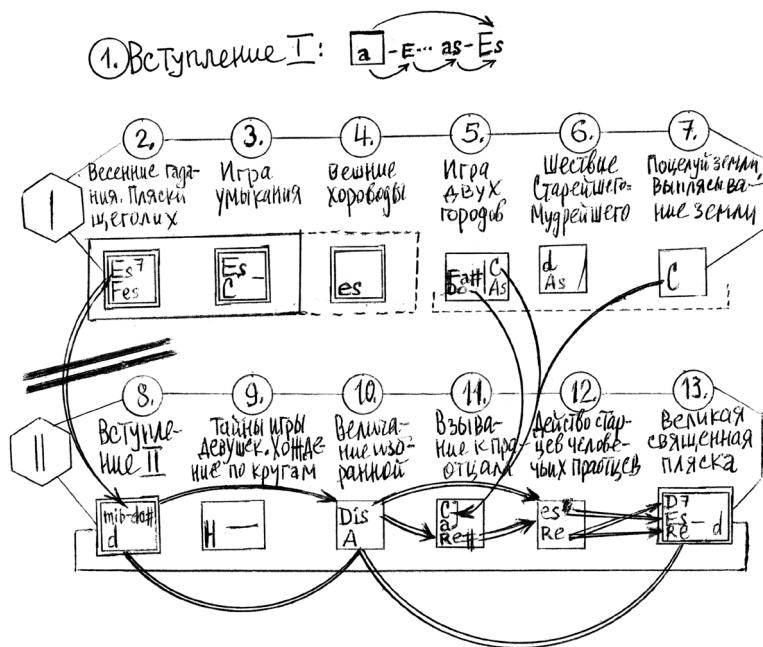 1. Вступление I: a - E ... as - Es
2. 3. 4. 5. 6. 7.
I
Весенние гада-
ния. Пляски
щеголих
Игра
умыкания
Вешние
хороводы
Игра
двух
городов
Шествие
Старейшего-
Мудрейшего
Поцелуй земли,
Выплясыва-
ние земли
Es7
Fes
Es
C –
es
C
As
d
As
C
8. 9. 10. 11. 12. 13.
II
Вступле-
ние II
Тайны игры
девушек. Хожде-
ние по кругам
Величa-
ние изб-
ранной
Взыва-
ние к пра-
отцам
Действо стар-
цев человe-
чьих праотцев
Великая
священная
пляска
mib-do#
d
H –
Dis
A
C
a
Re#
es
Re
D7
Es
Re – d